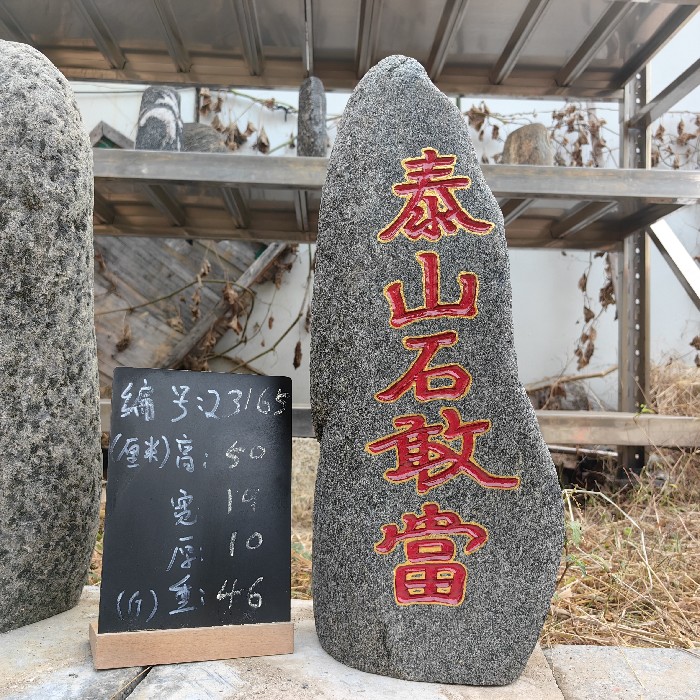 泰山石敢當
编号:23165
(厘米)高: 50
宽 19
厚: 10
(斤)重: 46